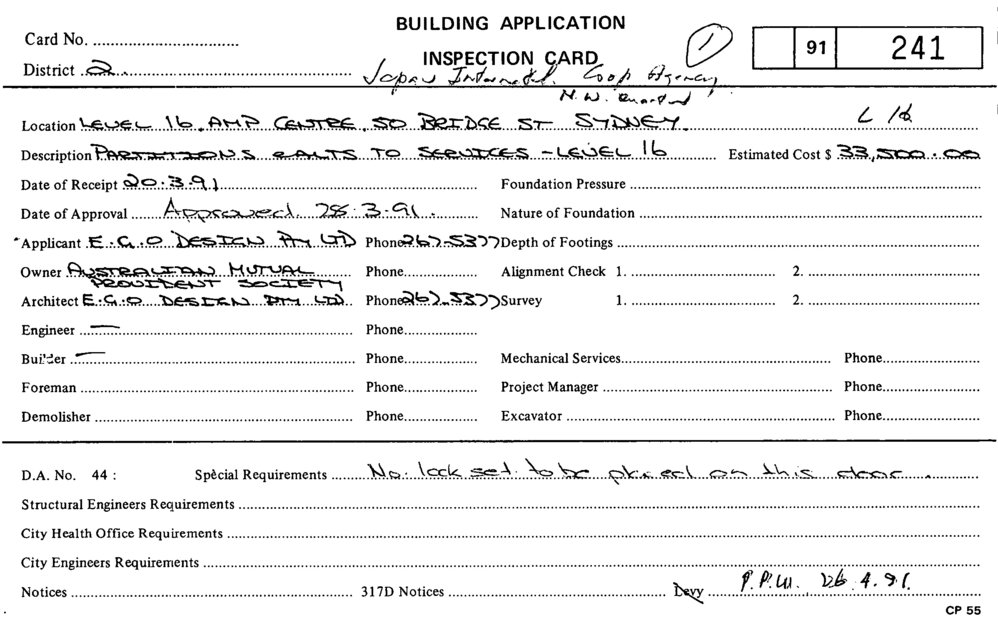 BUILDING APPLICATION
Card No.
INSPECTION CARD
1
91
241
District 2
Japan Internatl. Coop Agency
N.W. Quadrant
Location LEVEL 16, AMP CENTRE, 50 BRIDGE ST SYDNEY. L 16
Description PARTITIONS & ALTS TO SERVICES - LEVEL 16 Estimated Cost $ 33,500.00
Date of Receipt 20.3.91 Foundation Pressure
Date of Approval Approved 28.3.91. Nature of Foundation
Applicant E.G.O DESIGN Pty LTD Phone 267-5377 Depth of Footings
Owner AUSTRALIAN MUTUAL PROVIDENT SOCIETY Phone Alignment Check 1. 2.
Architect E.G.O DESIGN PTY LTD. Phone 267-5377 Survey 1. 2.
Engineer — Phone
Builder — Phone Mechanical Services Phone
Foreman Phone Project Manager Phone
Demolisher Phone Excavator Phone
D.A. No. 44 : Special Requirements No lock set to be placed on this door.
Structural Engineers Requirements
City Health Office Requirements
City Engineers Requirements
Notices 317D Notices Levy P.P.W. 26.4.91.
CP 55